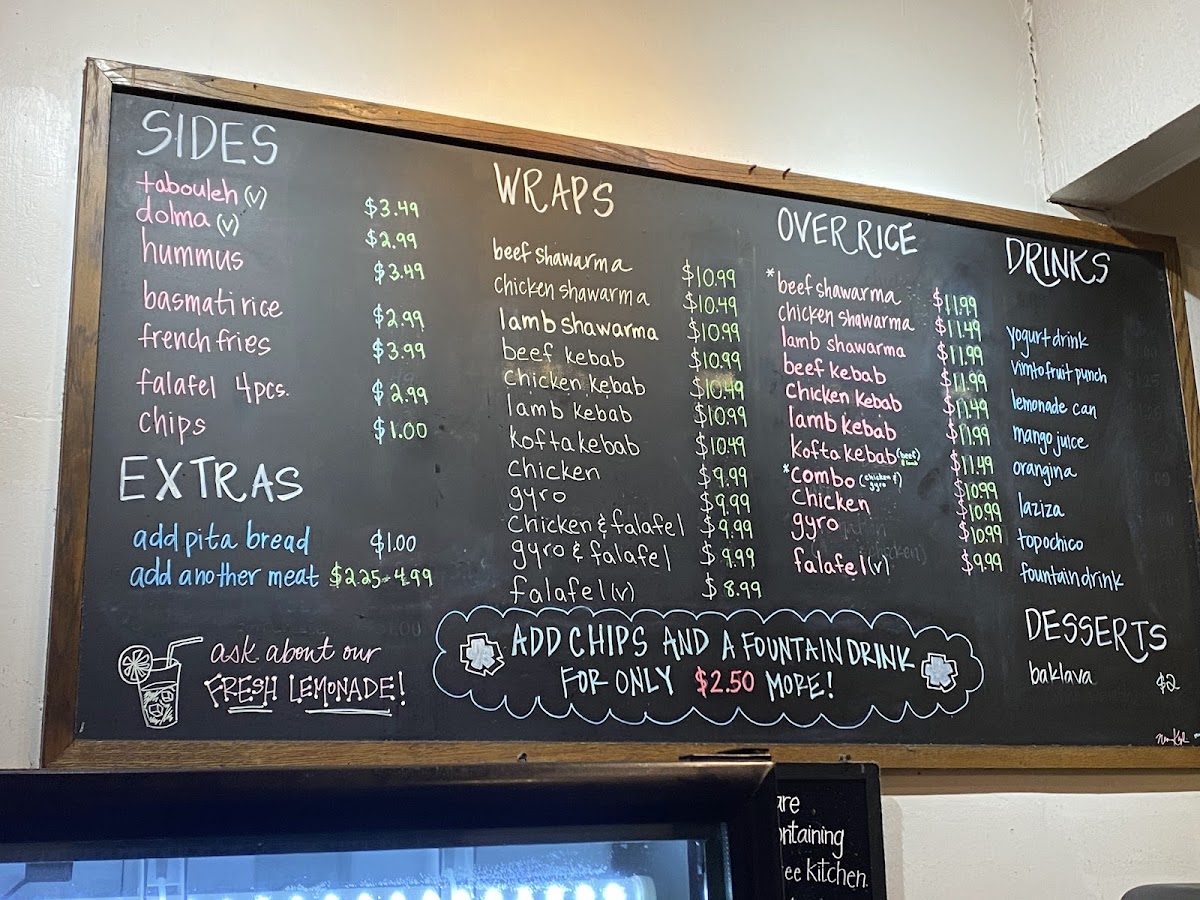 SIDES
tabouleh (v) $3.49
dolma (v) $2.99
hummus $3.49
basmati rice $2.99
french fries $3.99
falafel 4pcs. $2.99
chips $1.00
EXTRAS
add pita bread $1.00
add another meat $2.25-4.99
ask about our
FRESH LEMONADE!
WRAPS
beef shawarma $10.99
chicken shawarma $10.49
lamb shawarma $10.99
beef kebab $10.99
chicken kebab $10.49
lamb kebab $10.99
kofta kebab $10.49
chicken $9.99
gyro $9.99
chicken & falafel $9.99
gyro & falafel $9.99
falafel (v) $8.99
OVER RICE
*beef shawarma $11.99
chicken shawarma $11.49
lamb shawarma $11.99
beef kebab $11.99
chicken kebab $11.49
lamb kebab $11.99
kofta kebab (beef & lamb) $11.49
*combo (chicken & gyro) $10.99
chicken $10.99
gyro $10.99
falafel (v) $9.99
DRINKS
yogurt drink
vimto fruit punch
lemonade can
mango juice
orangina
laziza
topochico
fountain drink
DESSERTS
baklava $2
ADD CHIPS AND A FOUNTAIN DRINK
FOR ONLY $2.50 MORE!
are
ntaining
ee kitchen.